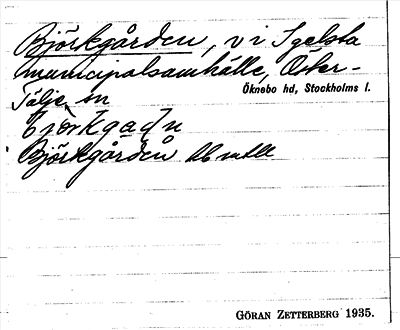 Björkgården, v i Igelsta
municipalsamhälle, Öster-
Tälje sn
Öknebo hd, Stockholms l.
Björkgården
GÖRAN ZETTERBERG 1935.